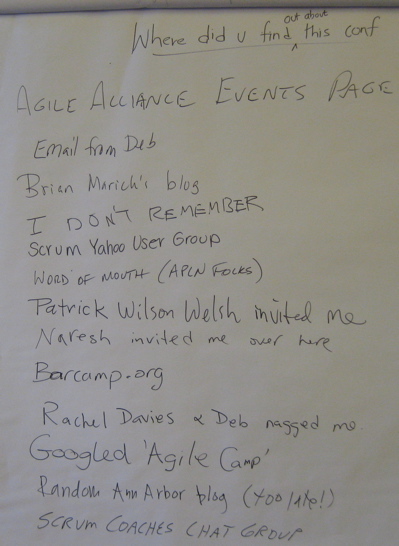 Where did u find out about this conf
AGILE ALLIANCE EVENTS PAGE
Email from Deb
Brian Marick's blog
I DON'T REMEMBER
Scrum Yahoo User Group
WORD OF MOUTH (APLN FOLKS)
Patrick Wilson Welsh invited me
Naresh invited me over here
Barcamp.org
Rachel Davies & Deb nagged me.
Googled 'Agile Camp'
Random Ann Arbor blog (
SCRUM COACHES CHAT GROUP